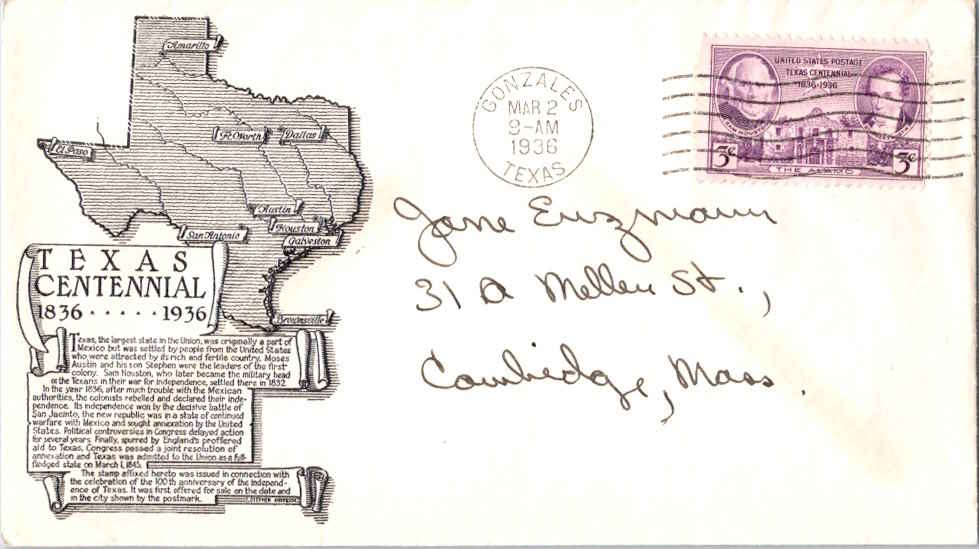 Amarillo
Ft. Worth
Dallas
El Paso
Austin
Houston
San Antonio
Galveston
Brownsville
TEXAS
CENTENNIAL
1836 · · · · · 1936
Texas, the largest state in the Union, was originally a part of
Mexico but was settled by people from the United States
who were attracted by its rich and fertile country. Moses
Austin and his son Stephen were the leaders of the first
colony. Sam Houston, who later became the military head
of the Texans in their war for independence, settled there in 1832.
In the year 1836, after much trouble with the Mexican
authorities, the colonists rebelled and declared their inde-
pendence. Its independence won by the decisive battle of
San Jacinto, the new republic was in a state of continued
warfare with Mexico and sought annexation by the United
States. Political controversies in Congress delayed action
for several years. Finally, spurred by England's proffered
aid to Texas, Congress passed a joint resolution of
annexation and Texas was admitted to the Union as a full-
fledged state on March 1, 1845.
The stamp affixed hereto was issued in connection with
the celebration of the 100th anniversary of the independ-
ence of Texas. It was first offered for sale on the date and
in the city shown by the postmark.
GONZALES
MAR 2
9-AM
1936
TEXAS
UNITED STATES POSTAGE
TEXAS CENTENNIAL
1836-1936
3¢
3¢
THE ALAMO
Jane Enzmann
31 A Mellen St.,
Cambridge, Mass.